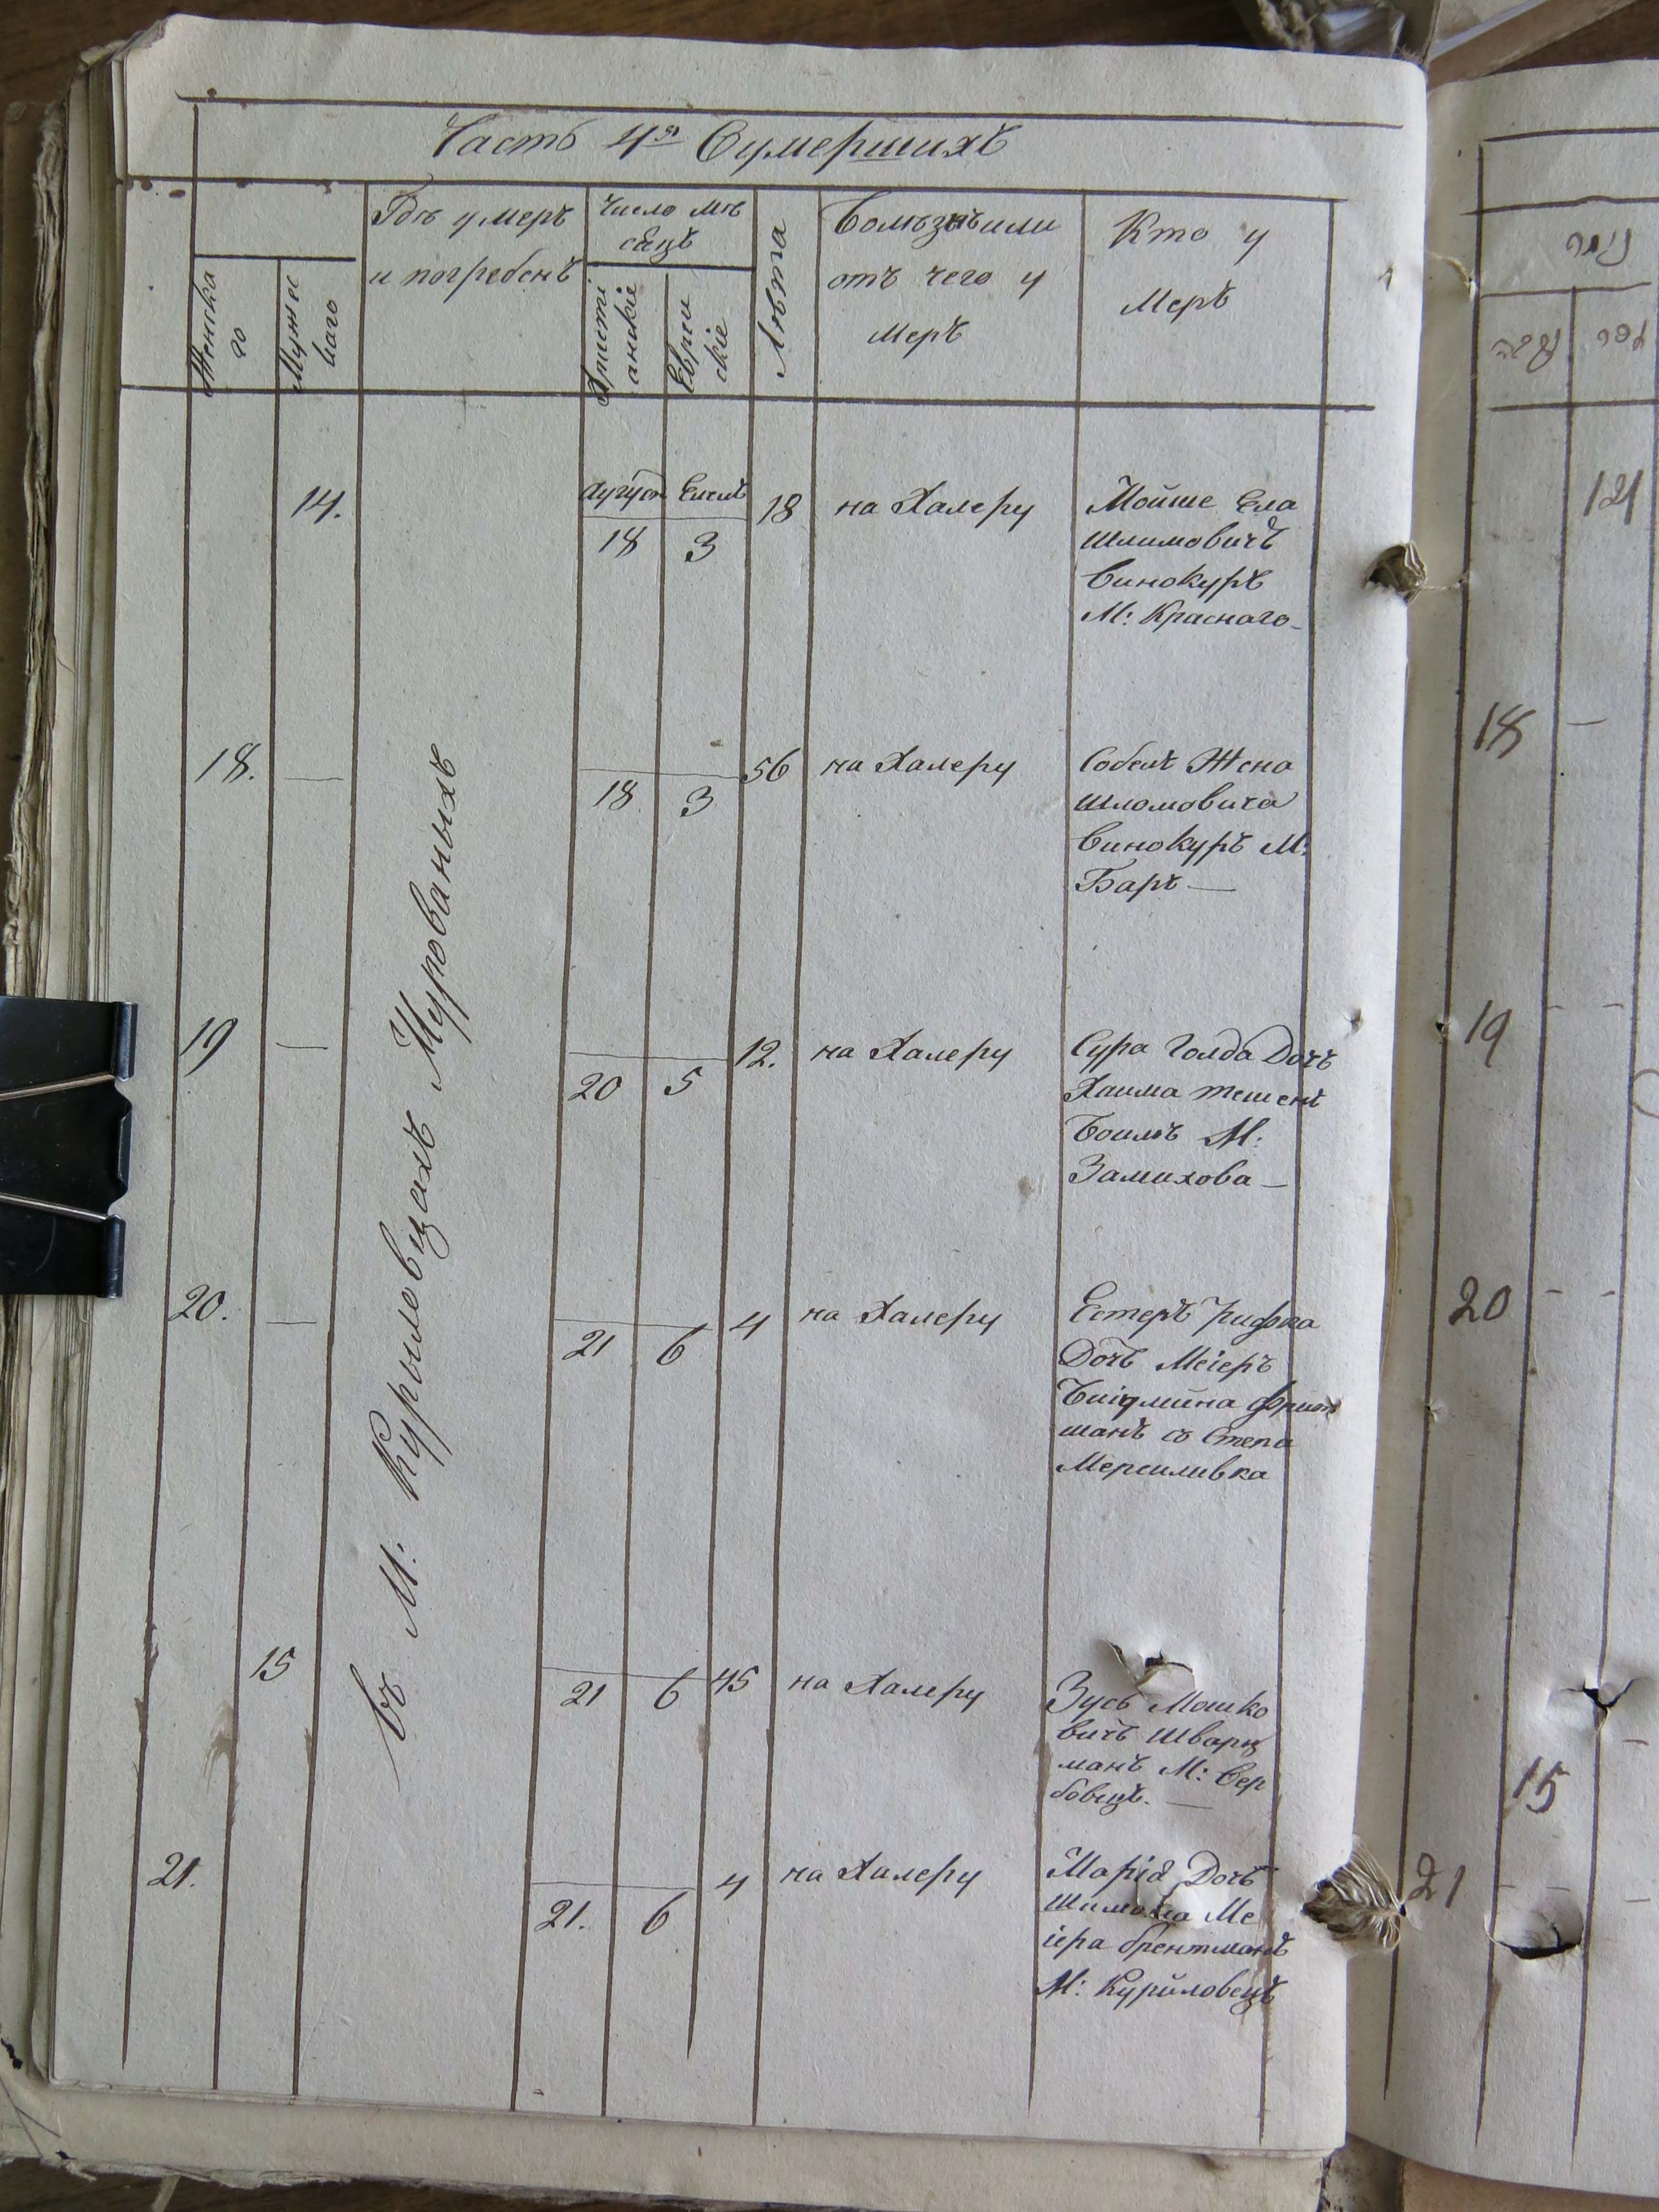 Часть 4я Оумершихъ
Женска
го
Мужес
каго
Гдѣ умеръ
и погребенъ
Число мѣ
сяцъ
Христі
анскіе
Еврей
скіе
Лѣта
Болѣзнь или
отъ чего у
меръ
Кто у
меръ
Въ М: Курыловцахъ Мурованыхъ
14.
Аугуст
18
3
18
на Халеру
Мойше Ела
Шлимовичъ
Винокуръ
М: Краснаго
18.
—
18
3
56
на Халеру
Собель Жена
Шломовича
Винокуръ М:
Баръ —
19
—
20
5
12.
на Халеру
Сура Голда Дочъ
Хаима
М:
Замихова —
20.
—
21
6
4
на Халеру
Естеръ Рифка
Дочъ Меіеръ
шанъ со Степи
15
21
6
45
на Халеру
Зусь Мошко
вичъ Шварц
манъ М: Вер
бовецъ. —
21.
21.
6
4
на Халеру
Дочъ
Ме
іера
М: Куриловецъ
121
18 —
19 - -
20 - -
15
21